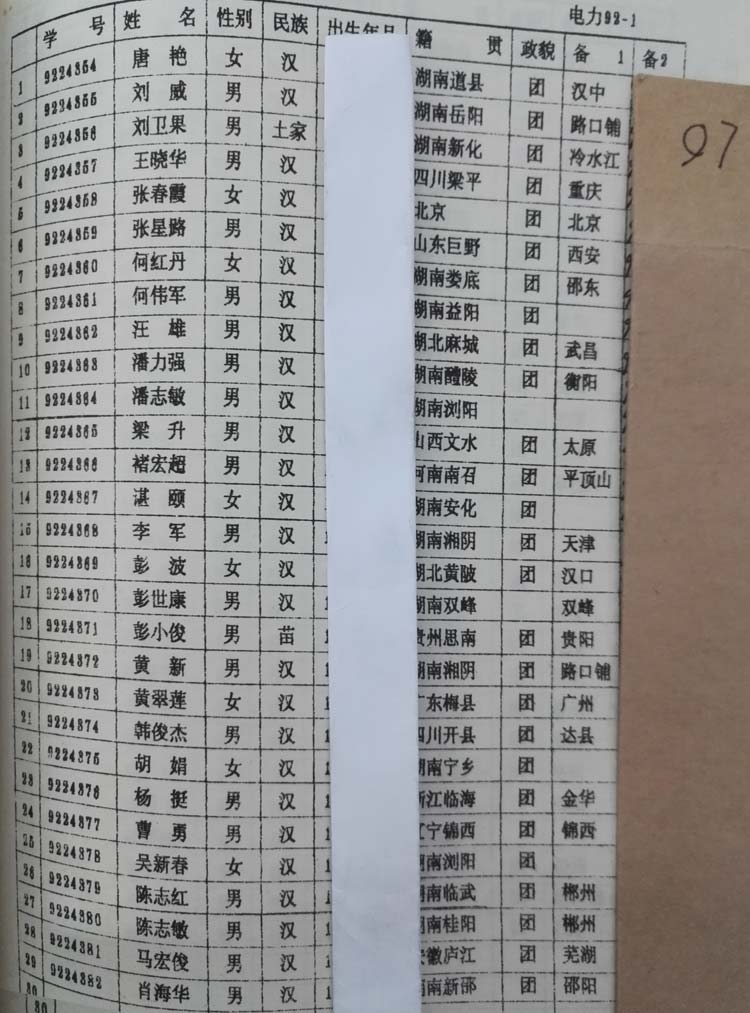 电力92-1
学号 姓名 性别 民族 出生年月 籍贯 政貌 备1 备2
1 9224354 唐艳 女 汉 湖南道县 团 汉中
2 9224355 刘威 男 汉 湖南岳阳 团 路口铺
3 9224356 刘卫果 男 土家 湖南新化 团 冷水江
4 9224357 王晓华 男 汉 四川梁平 团 重庆
5 9224358 张春霞 女 汉 北京 团 北京
6 9224359 张星路 男 汉 山东巨野 团 西安
7 9224360 何红丹 女 汉 湖南娄底 团 邵东
8 9224361 何伟军 男 汉 湖南益阳 团
9 9224362 汪雄 男 汉 湖北麻城 团 武昌
10 9224363 潘力强 男 汉 湖南醴陵 团 衡阳
11 9224364 潘志敏 男 汉 湖南浏阳
12 9224365 梁升 男 汉 山西文水 团 太原
13 9224366 褚宏超 男 汉 河南南召 团 平顶山
14 9224367 湛颐 女 汉 湖南安化 团
15 9224368 李军 男 汉 湖南湘阴 团 天津
16 9224369 彭波 女 汉 湖北黄陂 团 汉口
17 9224370 彭世康 男 汉 湖南双峰 双峰
18 9224371 彭小俊 男 苗 贵州思南 团 贵阳
19 9224372 黄新 男 汉 湖南湘阴 团 路口铺
20 9224373 黄翠莲 女 汉 广东梅县 团 广州
21 9224374 韩俊杰 男 汉 四川开县 团 达县
22 9224375 胡娟 女 汉 湖南宁乡 团
23 9224376 杨挺 男 汉 浙江临海 团 金华
24 9224377 曹勇 男 汉 辽宁锦西 团 锦西
25 9224378 吴新春 女 汉 湖南浏阳 团
26 9224379 陈志红 男 汉 湖南临武 团 郴州
27 9224380 陈志敏 男 汉 湖南桂阳 团 郴州
28 9224381 马宏俊 男 汉 安徽庐江 团 芜湖
29 9224382 肖海华 男 汉 湖南新邵 团 邵阳
30
30
97